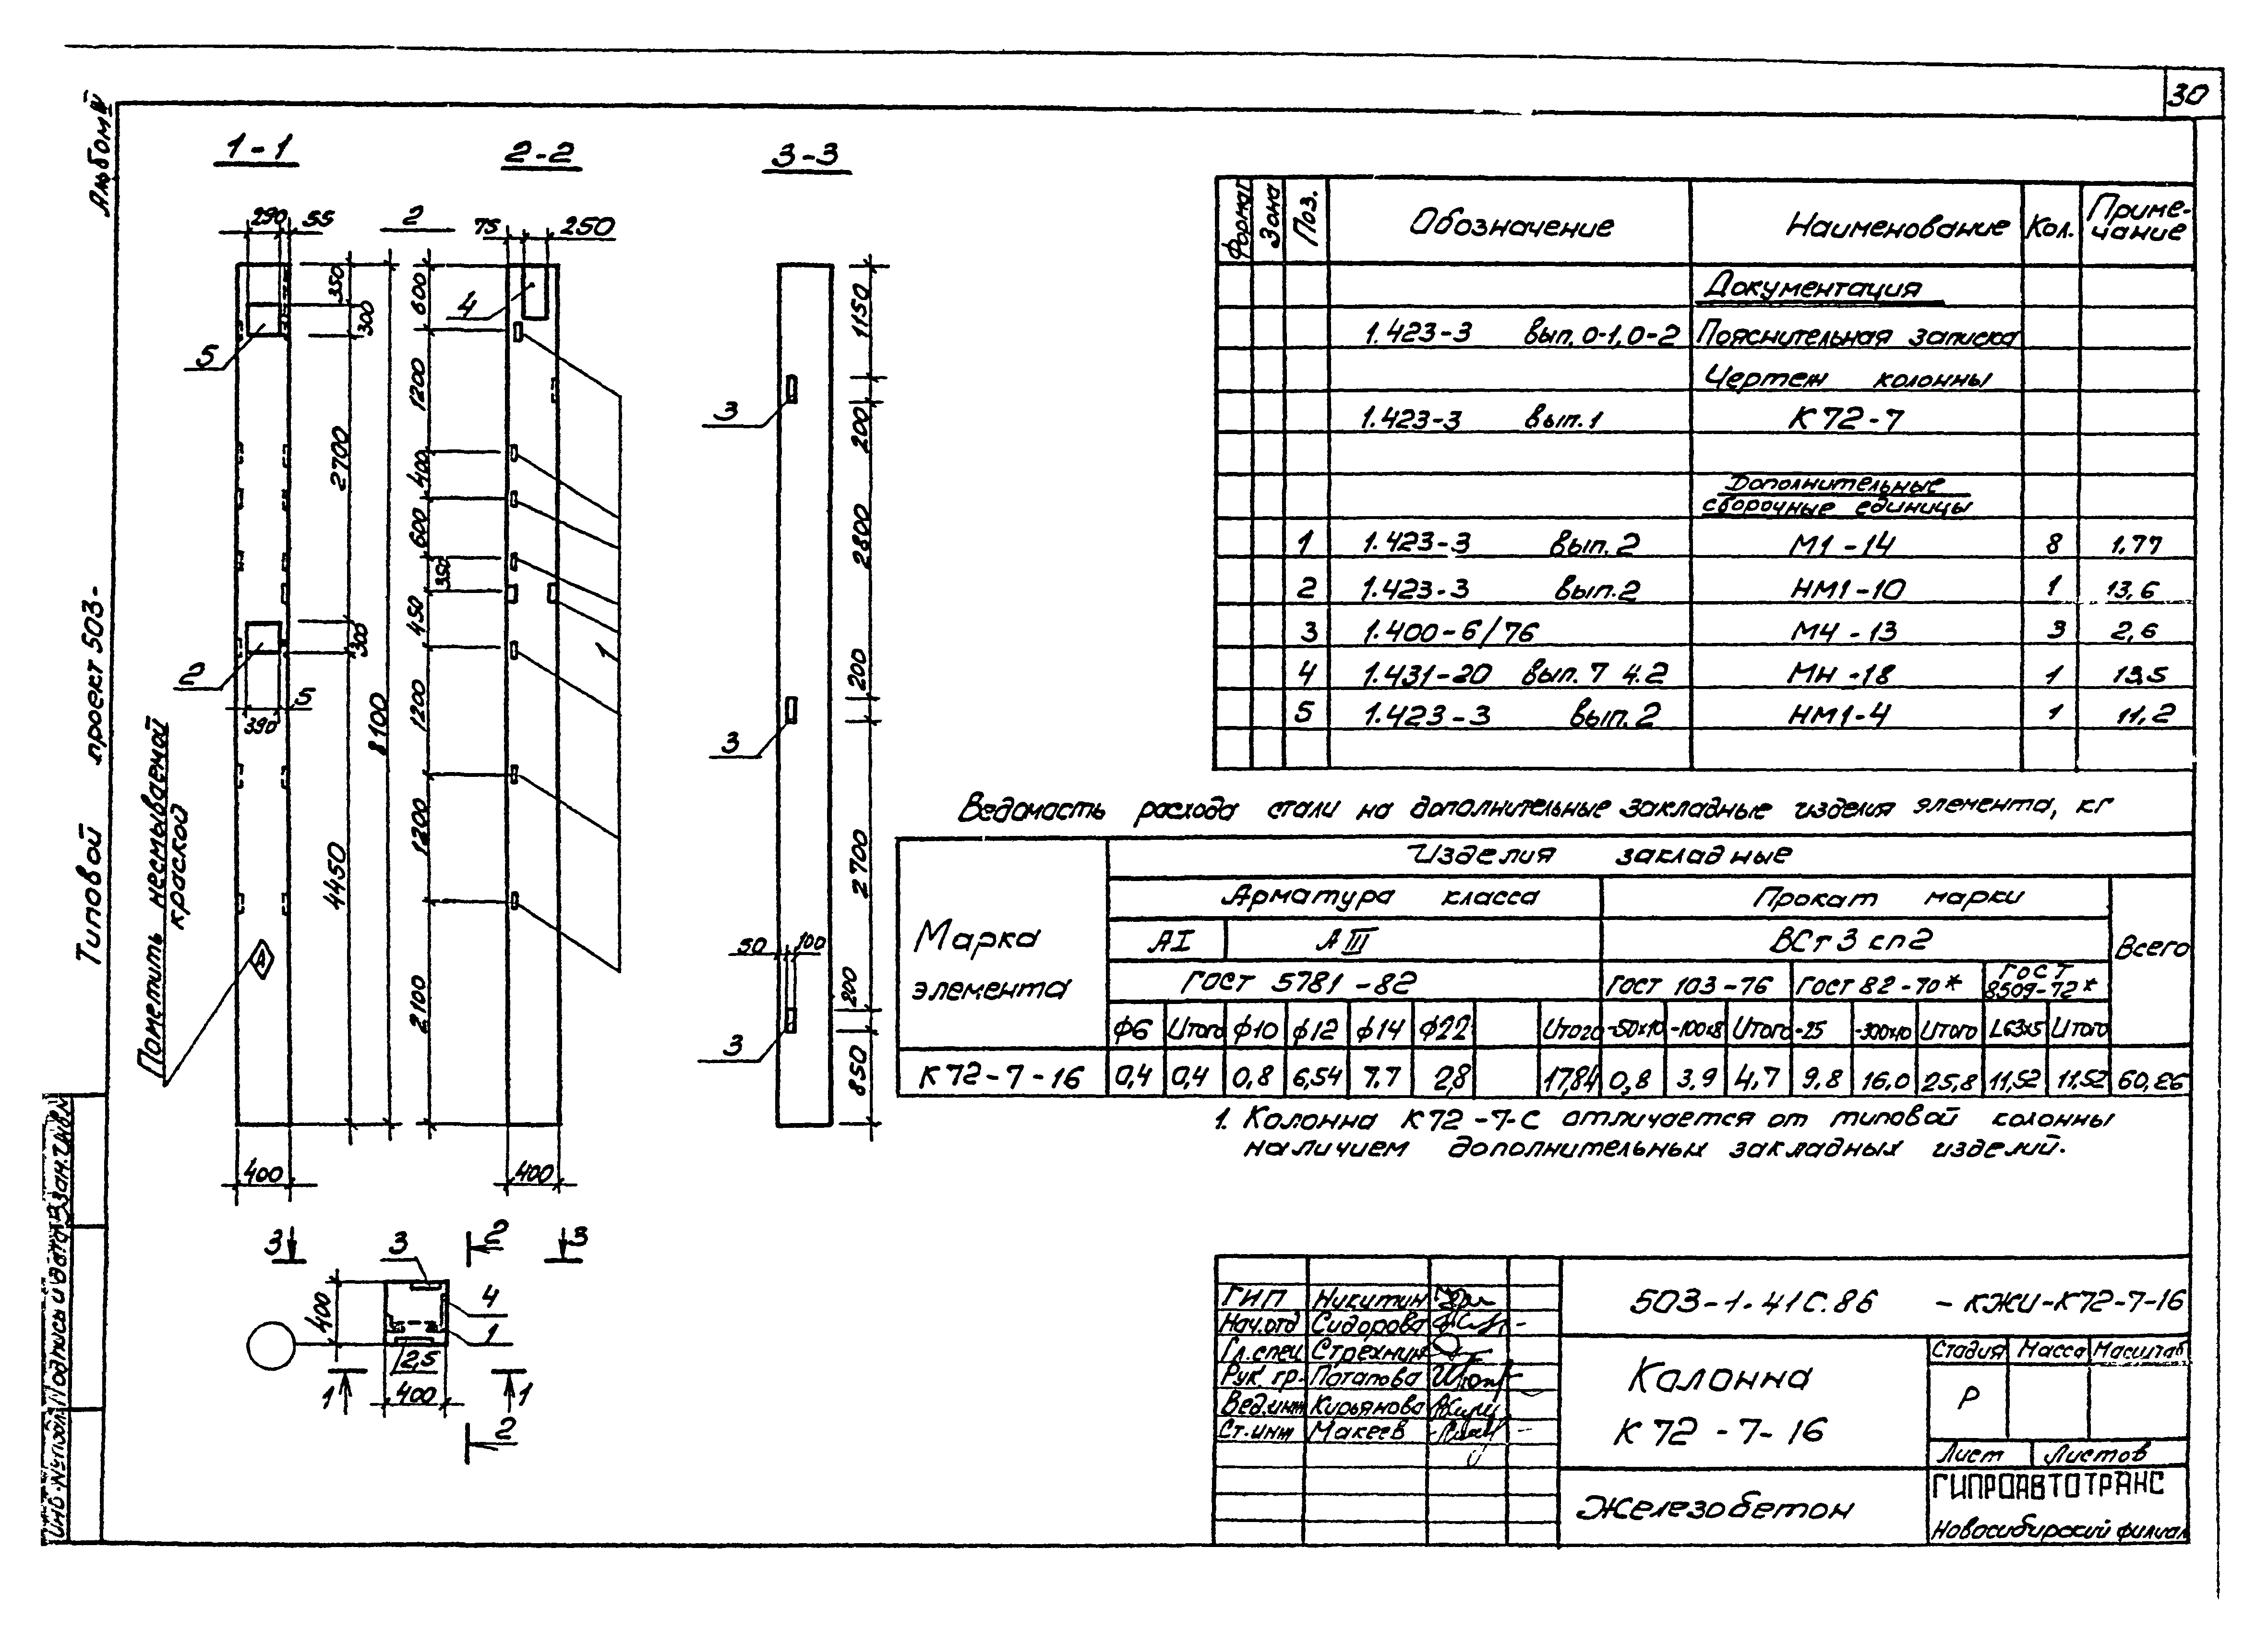 30
Альбом IV
Типовой проект 503-
1-1
2-2
3-3
290 55
2
75 250
350
300
5
2700
300
2
390 5
8100
4450
Пометить несмываемой
краской
А
400
4
600
1200
400
600
350
450
1200
1200
2100
1
400
1150
3
200
2800
200
3
2700
50 100
200
3
850
3 3
2
3
400
4
1
2,5
400
1 1
2
Формат Зона Поз. Обозначение Наименование Кол. Приме-
чание
Документация
1.423-3 вып. 0-1, 0-2 Пояснительная записка
Чертеж колонны
1.423-3 вып. 1 К 72-7
Дополнительные
сборочные единицы
1 1.423-3 вып. 2 М1-14 8 1,77
2 1.423-3 вып. 2 НМ1-10 1 13,6
3 1.400-6/76 М4-13 3 2,6
4 1.431-20 вып. 7 ч.2 Мн-18 1 13,5
5 1.423-3 вып. 2 НМ1-4 1 11,2
Ведомость расхода стали на дополнительные закладные изделия элемента, кг
Марка
элемента
Изделия закладные
Арматура класса Прокат марки Всего
АI АIII ВСт 3 сп 2
ГОСТ 5781-82 ГОСТ 103-76 ГОСТ 82-70* ГОСТ
8509-72*
ф6 Итого ф10 ф12 ф14 ф22 Итого -50х10 -100х8 Итого -25 -300х10 Итого L63х5 Итого
К 72-7-16 0,4 0,4 0,8 6,54 7,7 2,8 17,84 0,8 3,9 4,7 9,8 16,0 25,8 11,52 11,52 60,26
1. Колонна К 72-7-С отличается от типовой колонны
наличием дополнительных закладных изделий.
503-1-41С.86 -КЖИ-К72-7-16
ГИП Никитин
Нач.отд Сидорова
Гл.спец Стрехнин
Рук. гр. Потапова
Вед.инж Кирьянова
Ст.инж Макеев
Колонна
К 72-7-16
Железобетон
Стадия Масса Масштаб
Р
Лист Листов
ГИПРОАВТОТРАНС
Новосибирский филиал
Инв.№подл. Подпись и дата Взам.инв.№